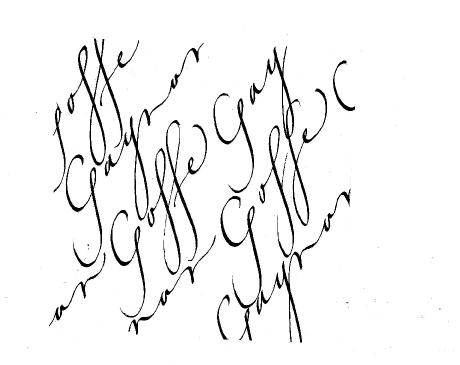 Goffe
Gaynor
or Goffe Gay
nor Goffe
Gaynor